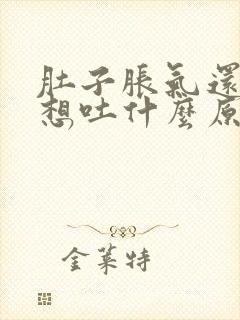 肚子脹氣還
想吐什麼原
金萊特